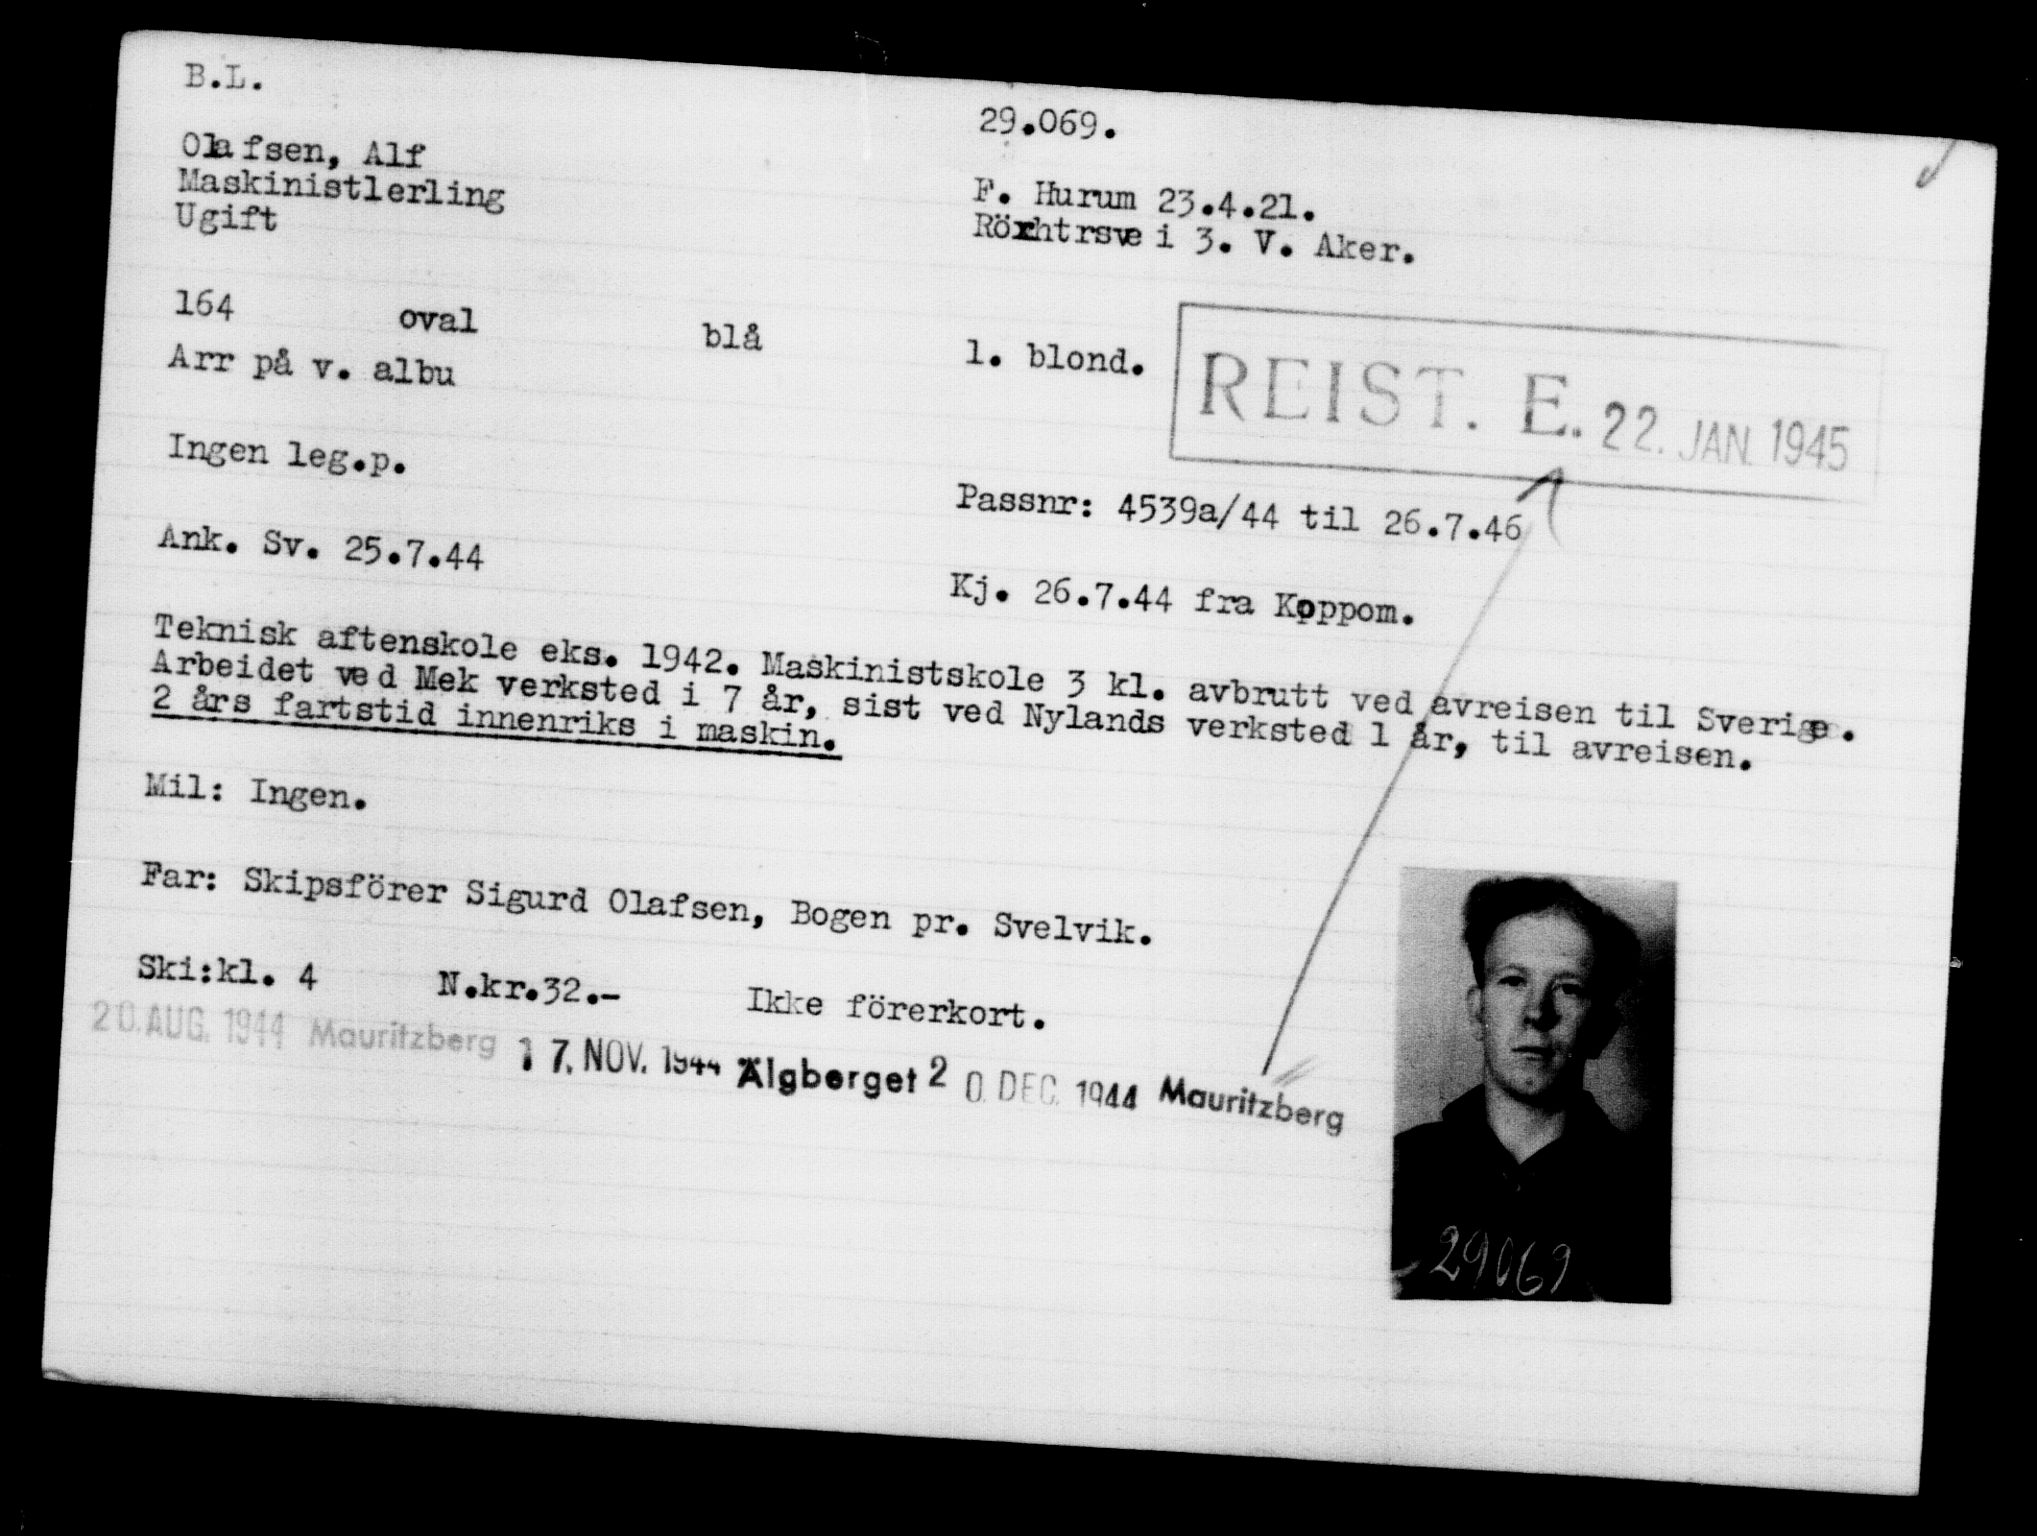 B.L.
29.069.
Olafsen, Alf
Maskinistlerling
Ugift
F. Hurum 23.4.21.
Vei 3. V. Aker.
164 oval blå l. blond.
Arr på v. albu
REIST. E. 22. JAN. 1945
Ingen leg.p.
Passnr: 4539a/44 til 26.7.46
Ank. Sv. 25.7.44
Kj. 26.7.44 fra Koppom.
Teknisk aftenskole eks. 1942. Maskinistskole 3 kl. avbrutt ved avreisen til Sverige.
Arbeidet ved Mek verksted i 7 år, sist ved Nylands verksted 1 år, til avreisen.
2 års fartstid innenriks i maskin.
Mil: Ingen.
Far: Skipsförer Sigurd Olafsen, Bogen pr. Svelvik.
Ski:kl. 4 N.kr.32.- Ikke förerkort.
20. AUG. 1944 Mauritzberg 17. NOV. 1944 Älgberget 20. DEC. 1944 Mauritzberg
29069